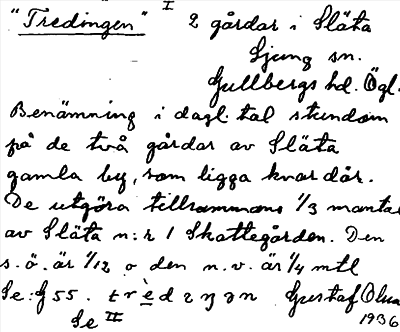 "Tredingen" I 2 gårdar i Släta
Ljung sn.
Gullbergs hd. Ögl.
Benämning i dagl. tal stundom
på de två gårdar av Släta
gamla by, som ligga kvar där.
De utgöra tillsammans 1/3 mantal
av Släta n:r 1 Skattegården. Den
s. ö. är 1/12 o den n. v. är 1/4 mtl
Se: G 55. Gustaf
Se II 1936